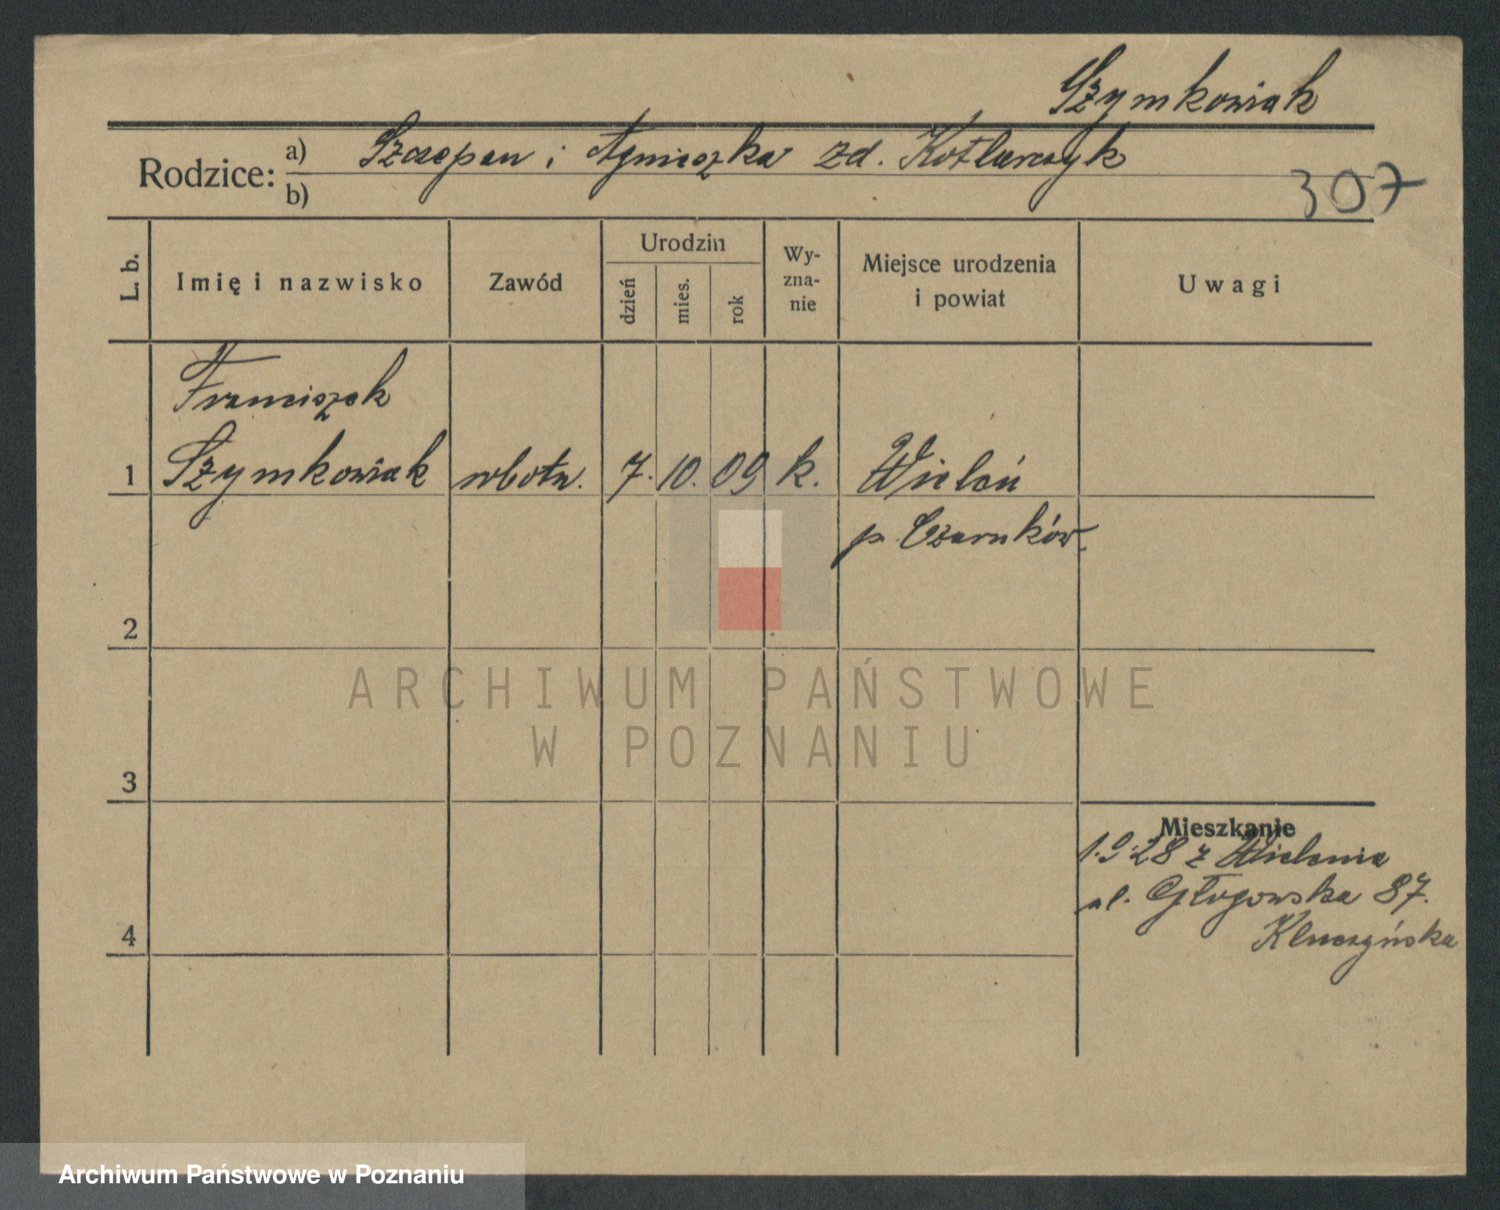 Szymkowiak
Rodzice: a) Szczepan i Agnieszka zd. Kotlarczyk
b)
307
L. b.
Imię i nazwisko
Zawód
Urodzin
dzień
mies.
rok
Wy-
zna-
nie
Miejsce urodzenia
i powiat
Uwagi
Franciszek
1 Szymkowiak robotn. 7. 10. 09 k. Wieleń
p. Czarnków.
2
ARCHIWUM PAŃSTWOWE
W POZNANIU
3
Mieszkanie
1.9.28 z Wielenia
ul. Głogowska 87.
Kluczyńska
4
Archiwum Państwowe w Poznaniu